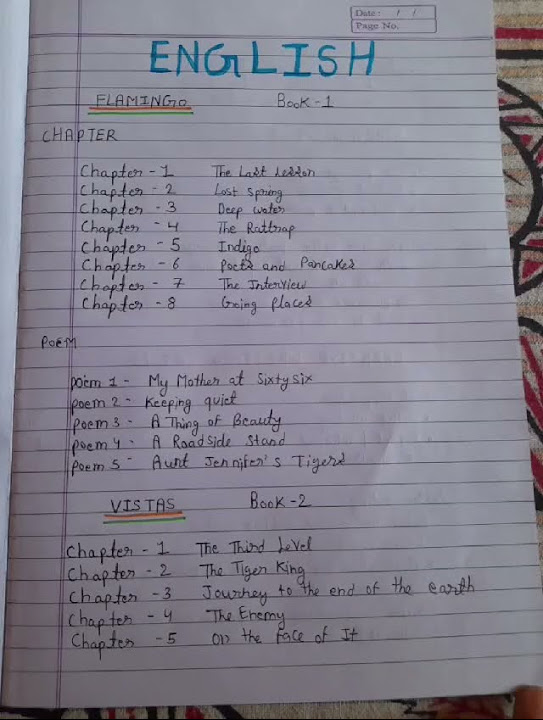 Date: / /
Page No.
ENGLISH
FLAMINGO Book-1
CHAPTER
Chapter - 1 The Last Lesson
Chapter - 2 Lost Spring
Chapter - 3 Deep water
Chapter - 4 The Rattrap
Chapter - 5 Indigo
Chapter - 6 Poets and Pancakes
Chapter - 7 The Interview
Chapter - 8 Going places
POEM
poem 1 - My Mother at Sixty six
poem 2 - Keeping quiet
poem 3 - A Thing of Beauty
poem 4 - A Roadside Stand
poem 5 - Aunt Jennifer's Tigers
VISTAS Book-2
Chapter - 1 The Third Level
Chapter - 2 The Tiger King
Chapter - 3 Journey to the end of the earth
Chapter - 4 The Enemy
Chapter - 5 on the face of It